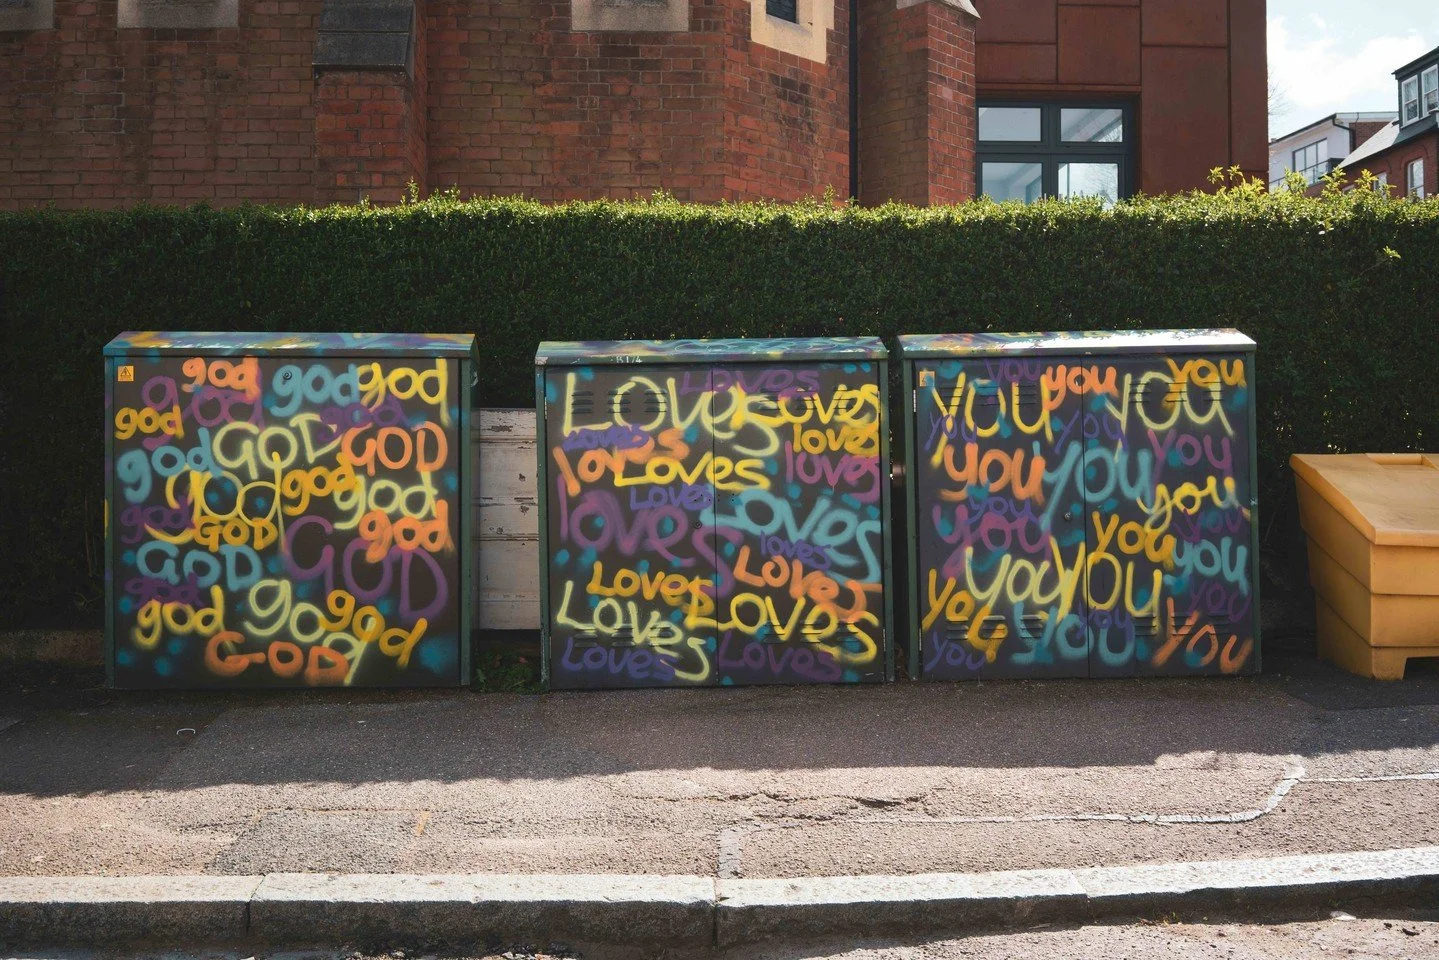 god god god
god god god
GOD GOD
god god god god
god GOD god
GOD GOD
god god god god
GOD
B174
Loves Loves Loves
Loves loves
loves Loves loves
Loves
loves Loves
loves
Loves Loves
Loves Loves
Loves Loves
you you you you
you you you
you you you
you you
you you you
you you you
you you you
you you you you